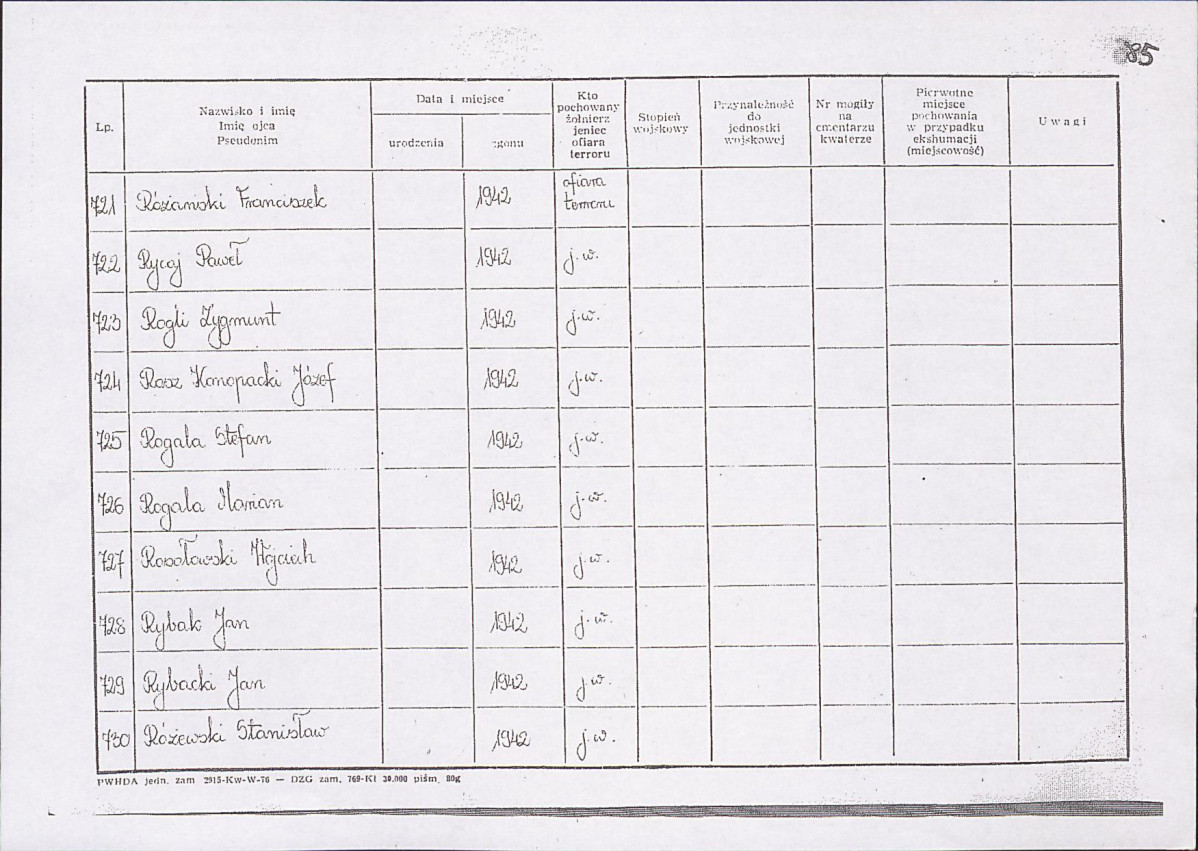 85
Lp.
Nazwisko i imię
Imię ojca
Pseudonim
Data i miejsce
urodzenia
zgonu
Kto
pochowany
żołnierz
jeniec
ofiara
terroru
Stopień
wojskowy
Przynależność
do
jednostki
wojskowej
Nr mogiły
na
cmentarzu
kwaterze
Pierwotne
miejsce
pochowania
w przypadku
ekshumacji
(miejscowość)
Uwagi
721 Różański Franciszek 1942 ofiara
terroru
722 Rycaj Paweł 1942 j.w.
723 Rogli Zygmunt 1942 j.w.
724 Rosz Konopacki Józef 1942 j.w.
725 Rogala Stefan 1942 j.w.
726 Rogala Marian 1942 j.w.
727 Rosołowski Wojciech 1942 j.w.
728 Rybak Jan 1942 j.w.
729 Rybacki Jan 1942 j.w.
730 Różewski Stanisław 1942 j.w.
PWHDA jedn. zam 2915-Kw-W-76 — DZG zam. 769-Kl 30.000 piśm. 80g